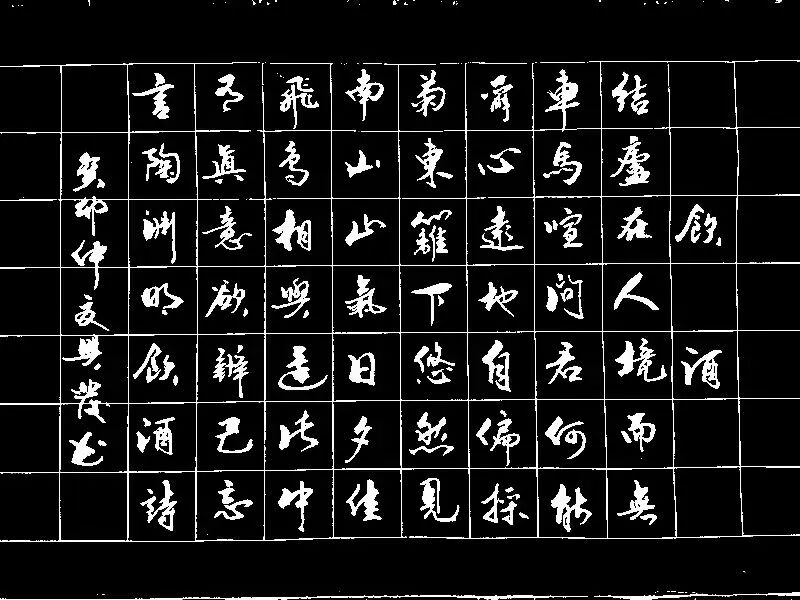 飲酒
結廬在人境而無
車馬喧問君何能
爾心遠地自偏採
菊東籬下悠然見
南山山氣日夕佳
飛鳥相與還此中
有眞意欲辨已忘
言陶淵明飲酒詩
癸卯仲夏興發